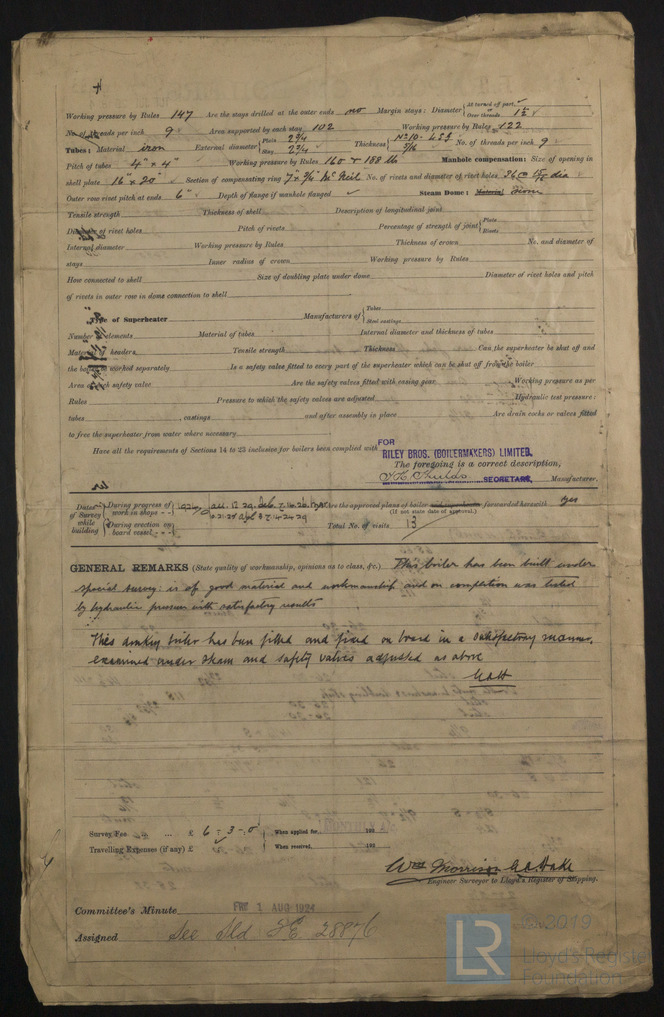 Working pressure by Rules 147 Are the stays drilled at the outer ends no Margin stays: Diameter { At turned off part, Over threads 1½
No. of threads per inch 9 Area supported by each stay 102 Working pressure by Rules 122
Tubes: Material iron External diameter { Plain 2¾ Stay 2¾ Thickness { No 10 5/16 No. of threads per inch 9
Pitch of tubes 4" × 4" Working pressure by Rules 160 + 188 lb Manhole compensation: Size of opening in
shell plate 16" × 20" Section of compensating ring 7" × ¾" McNeil No. of rivets and diameter of rivet holes 36 dia
Outer row rivet pitch at ends 6" Depth of flange if manhole flanged Steam Dome: Material None
Tensile strength Thickness of shell Description of longitudinal joint
Diameter of rivet holes Pitch of rivets Percentage of strength of joint { Plate Rivets
Internal diameter Working pressure by Rules Thickness of crown No. and diameter of
stays Inner radius of crown Working pressure by Rules
How connected to shell Size of doubling plate under dome Diameter of rivet holes and pitch
of rivets in outer row in dome connection to shell
Type of Superheater Manufacturers of { Tubes Steel castings
Number of elements Material of tubes Internal diameter and thickness of tubes
Material of headers Tensile strength Thickness Can the superheater be shut off and
the boiler be worked separately Is a safety valve fitted to every part of the superheater which can be shut off from the boiler
Area of each safety valve Are the safety valves fitted with easing gear Working pressure as per
Rules Pressure to which the safety valves are adjusted Hydraulic test pressure:
tubes , castings and after assembly in place Are drain cocks or valves fitted
to free the superheater from water where necessary
Have all the requirements of Sections 14 to 23 inclusive for boilers been complied with
FOR
RILEY BROS. (BOILERMAKERS) LIMITED.
The foregoing is a correct description,
SECRETARY, Manufacturer.
Dates of Survey while building { During progress of work in shops - - 1924 Jan. 12. 29. Feb. Are the approved plans of boiler and superheater forwarded herewith yes
(If not state date of approval.)
During erection on board vessel - - - Total No. of visits 13
GENERAL REMARKS (State quality of workmanship, opinions as to class, &c.) This boiler has been built under
special survey: is of good material and workmanship and on completion was tested
by hydraulic pressure with satisfactory results
This donkey boiler has been fitted and fixed on board in a satisfactory manner,
examined under steam and safety valves adjusted as above
Survey Fee ... ... £ 6 : 3 : 0 { When applied for, 192
Travelling Expenses (if any) £ { When received, 192
Wm Morrison
Engineer Surveyor to Lloyd's Register of Shipping.
Committee's Minute FRI 1 AUG 1924
Assigned See Sld FE 28876
LR
© 2019
Lloyd's Register
Foundation